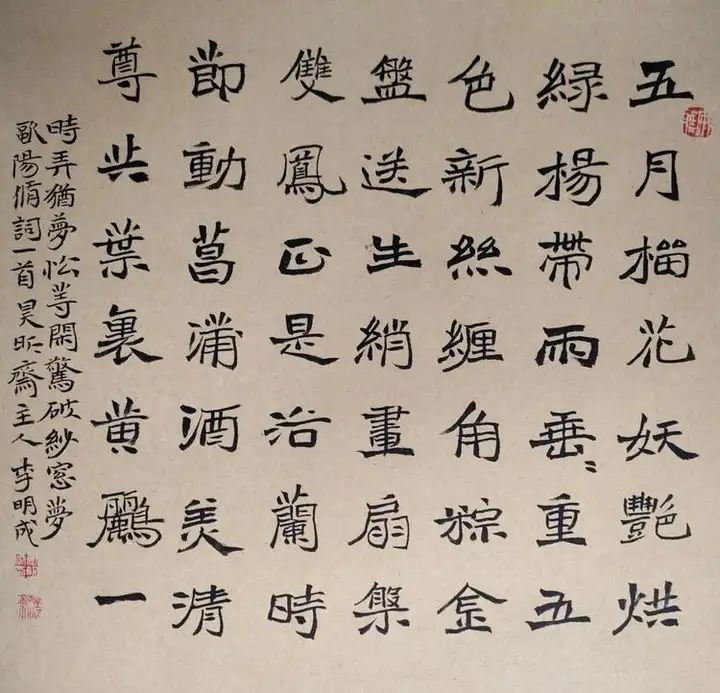 五月榴花妖艷烘
綠楊帶雨垂〻重五
色新絲纏角粽金
盤送生綃畫扇槃
雙鳳正是浴蘭時
節動菖蒲酒美清
尊共葉裏黄鸝一
時弄猶夢忪等閒驚破紗窓夢
歐陽脩詞一首昊昕齋主人李明成